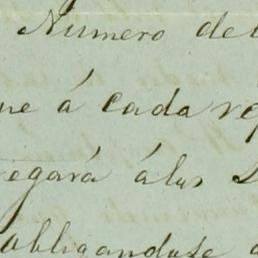 Numero del
ue á cada re
egará álas
obligandose